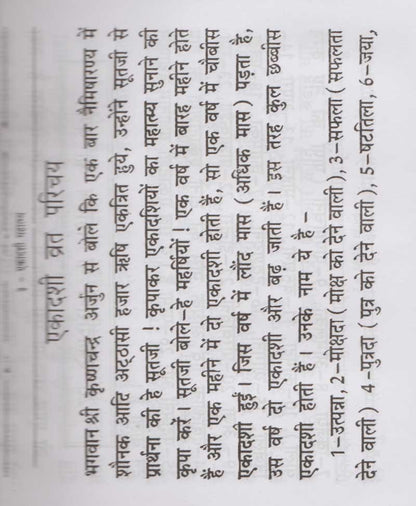 १० एकादशी महात्म्य
एकादशी व्रत परिचय
भगवान श्री कृष्णचन्द्र अर्जुन से बोले कि एक बार नैमिषारण्य में
शौनक आदि अट्ठासी हजार ऋषि एकत्रित हुये, उन्होंने सूतजी से
प्रार्थना की हे सूतजी ! कृपाकर एकादशियों का महात्म्य सुनाने की
कृपा करें। सूतजी बोले-हे महर्षियों ! एक वर्ष में बारह महीने होते
हैं और एक महीने में दो एकादशी होती हैं, सो एक वर्ष में चौबीस
एकादशी हुईं। जिस वर्ष में लौंद मास (अधिक मास) पड़ता है,
उस वर्ष दो एकादशी और बढ़ जाती हैं। इस तरह कुल छब्बीस
एकादशी होती हैं। उनके नाम ये हैं-
1-उत्पन्ना, 2-मोक्षदा (मोक्ष को देने वाली), 3-सफला (सफलता
देने वाली) 4-पुत्रदा (पुत्र को देने वाली), 5-षटतिला, 6-जया,